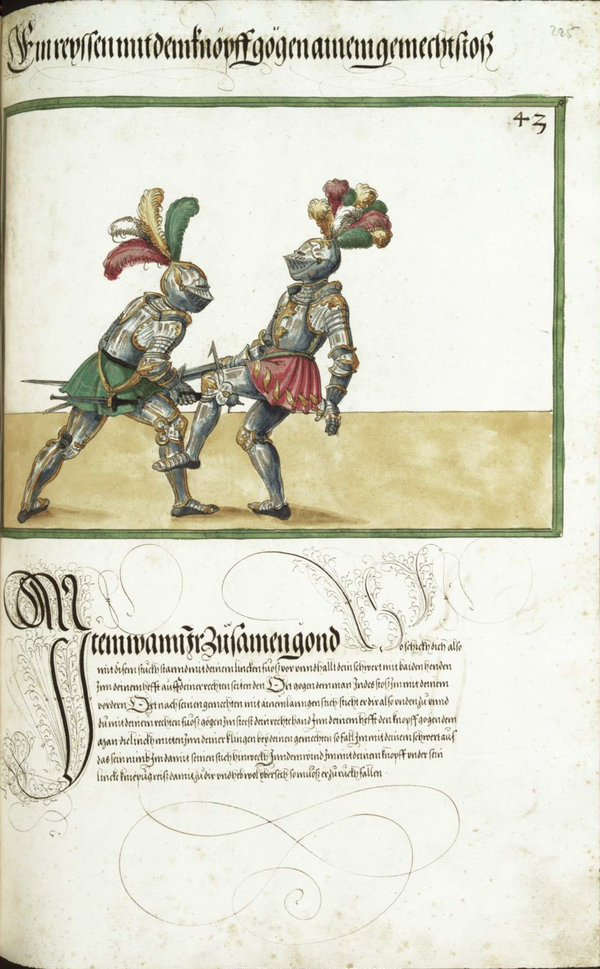 Ein reyssen mit dem knöpff gögen ainem gemechtstoß
225
43
Item wann Ir Zusamen gond so schickh dich also
mit disem stuckh stannd mit deinem lincken fuoß vor unnd hallt dein schwert mit baiden henden
Inn deinem hefft auff deiner rechten seiten den Ort gögen dem man Indes stoß Im mit deinem
vordern Ort nach seinen gemechten mit ainem langen stich sticht er dir also unden zu unnd
du mit deinem rechten fuoß gögen Im steest dein recht hand Inn deinem hefft den knopff gögen dem
man die linckh mitten Inn deiner klingen bey deinen gemechten so fall Im mit deinem schwert auf
das sein nimb Im damit seinen stich hinweckh Inn dem wind Im mit deinem knopff under sein
lincke kniepüg reiß damit zu dir unnd heb wol übersich so muoß er zu ruckh fallen